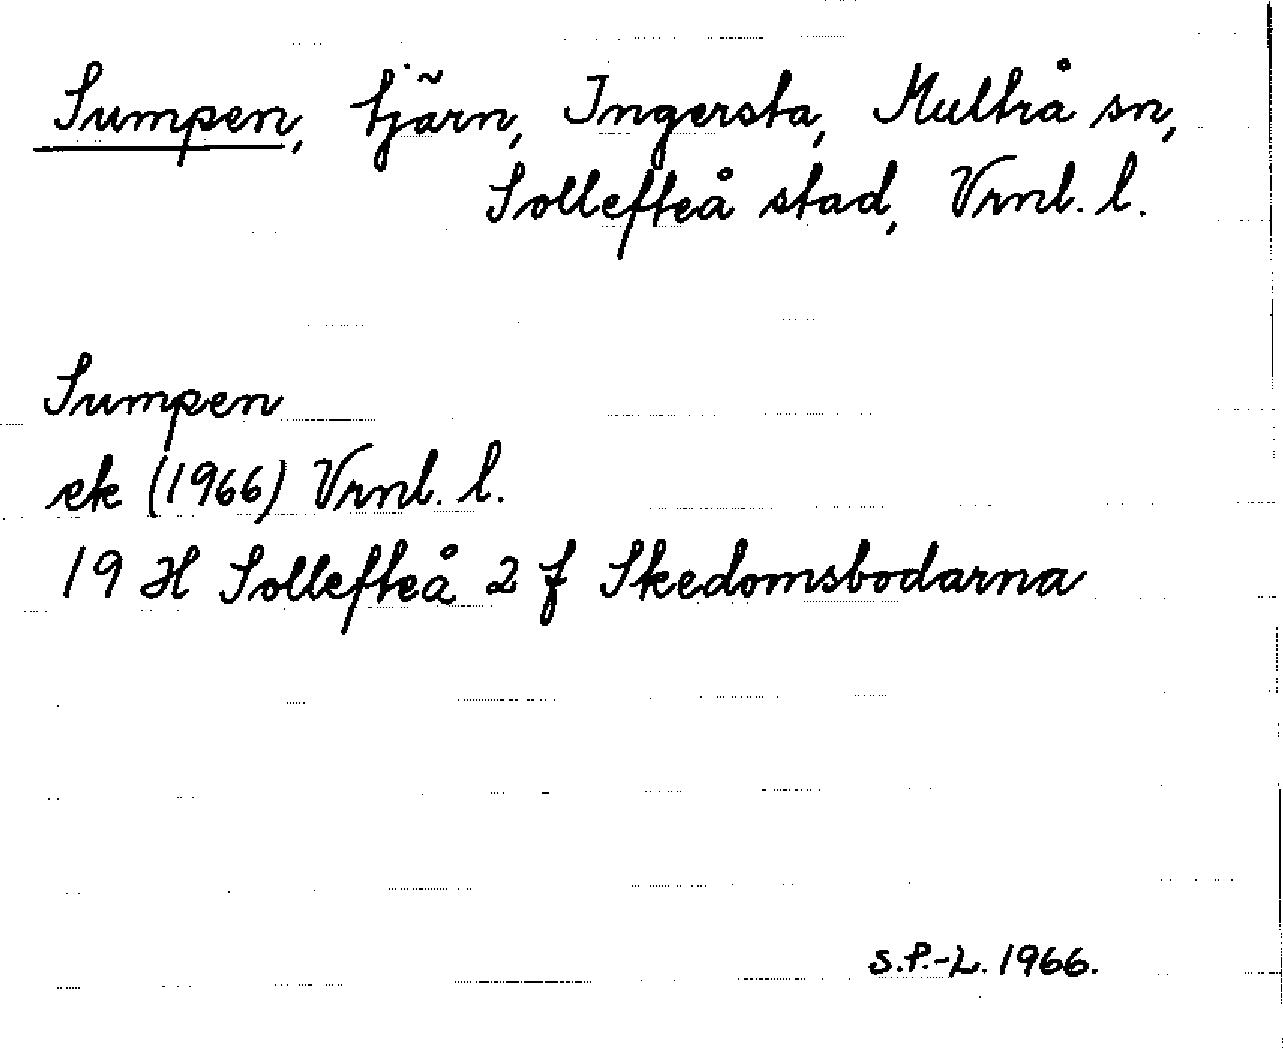 Sumpen, tjärn, Ingersta, Multrå sn,
Sollefteå stad, Vrnl. l.
Sumpen
ek (1966) Vrnl. l.
19 H Sollefteå 2 f Skedomsbodarna
S.P.-L. 1966.